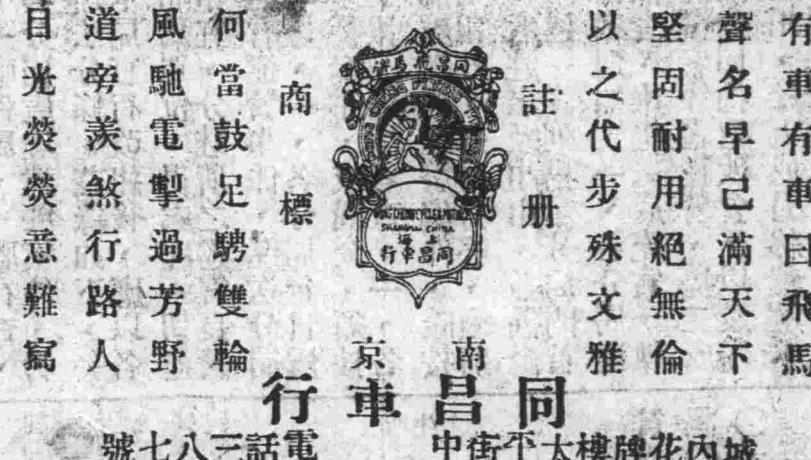 有車有車曰飛馬
聲名早己滿天下
堅固耐用絕無倫
以之代步殊文雅
註册
商標
同昌飛馬牌
SHANGHAI CHINA
上海
同昌車行
何當鼓足騁雙輪
風馳電掣過芳野
道旁羨煞行路人
目光熒熒意難寫
南京
同昌車行
城內花牌樓太平街中
電話三八七號